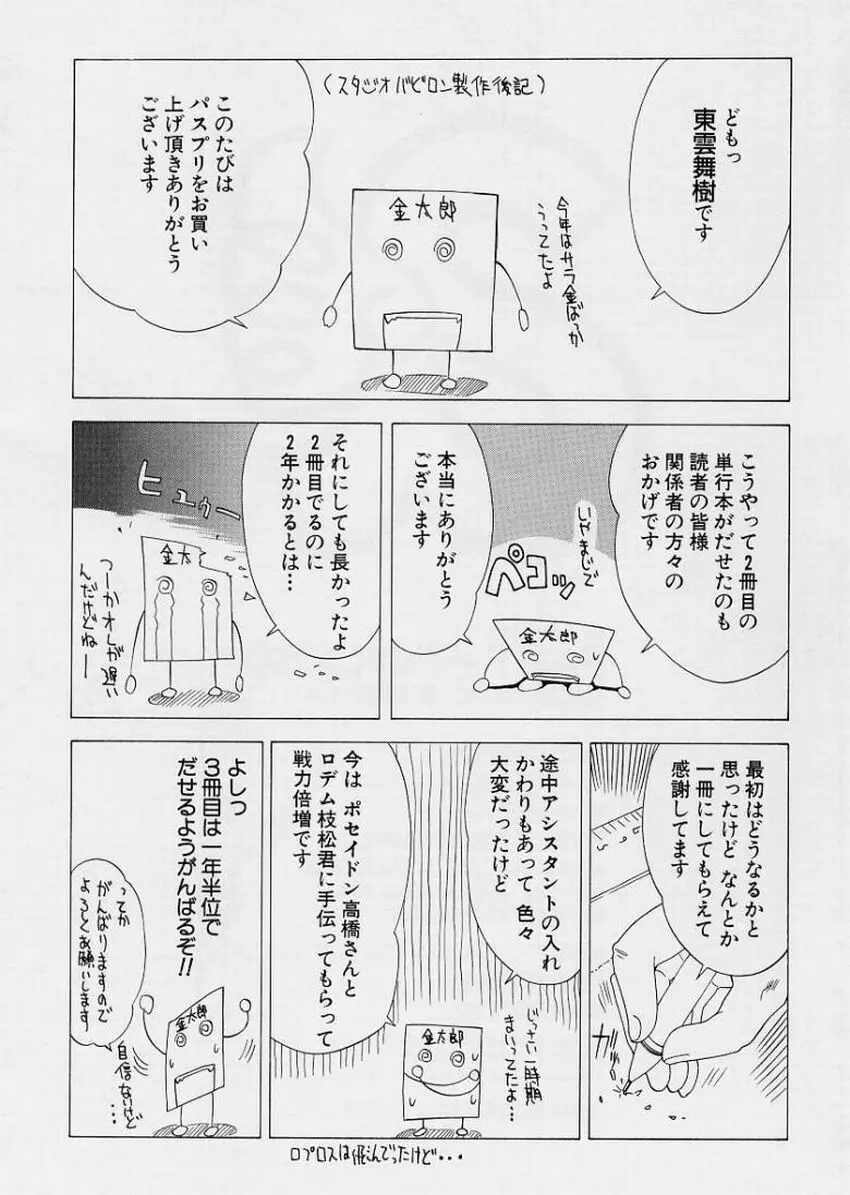 (スタジオバビロン製作後記)
どもっ
東雲舞樹です
今年はサラ金ばっか
うってたよ
金太郎
このたびは
パスプリをお買い
上げ頂きありがとう
ございます
こうやって2冊目の
単行本がだせたのも
読者の皆様
関係者の方々の
おかげです
いやまじで
ペコッ
金太郎
本当にありがとう
ございます
それにしても長かったよ
2冊目でるのに
2年かかるとは…
ヒュゥー
金太
つーかオレが遅い
んだけどねー
最初はどうなるかと
思ったけど なんとか
一冊にしてもらえて
感謝してます
ガ
途中アシスタントの入れ
かわりもあって 色々
大変だったけど
じっさい一時期
まいってたよ…
金太郎
今は ポセイドン高橋さんと
ロデム枝松君に手伝ってもらって
戦力倍増です
よしっ
3冊目は一年半位で
だせるようがんばるぞ!!
金太郎
ってか
がんばりますので
よろしくお願いします
自信ないけど
…
ロプロスは飛んでったけど・・・